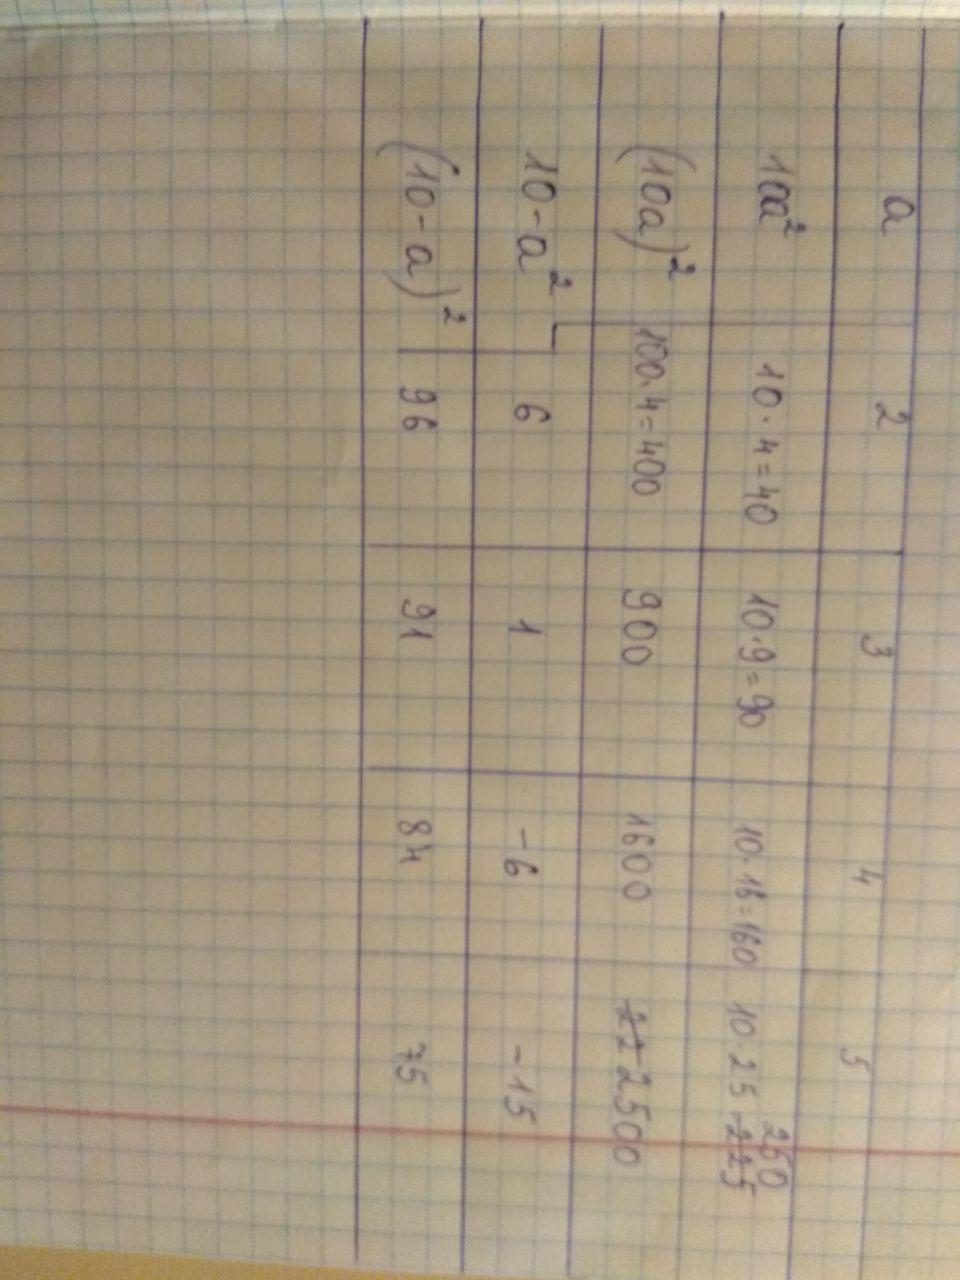 a 2 3 4 5
10a² 10·4=40 10·9=90 10·16=160 10·25 225 250
(10a)² 100·4=400 900 1600 22 2500
10-a² 6 1 -6 -15
(10-a)² 96 91 84 75